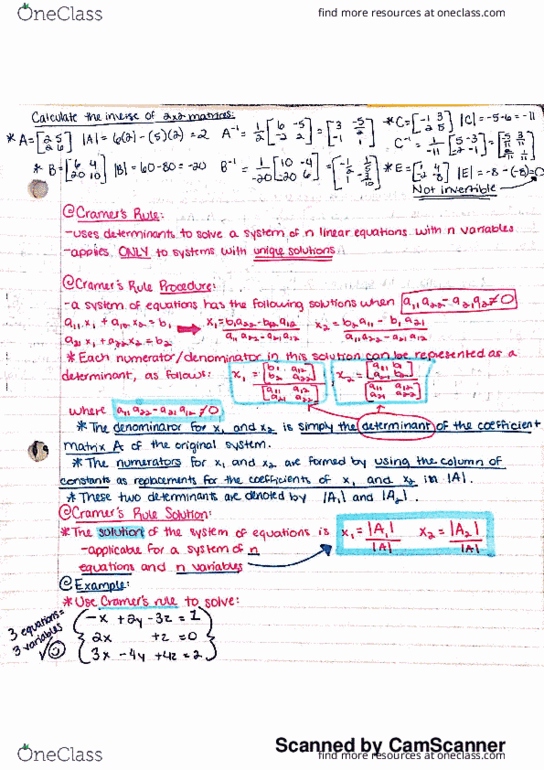 OneClass
find more resources at oneclass.com
Calculate the inverse of 2x2 matrices:
* A = [2 5; 2 6] |A| = 6(2) - (5)(2) = 2 A⁻¹ = 1/2 [6 -5; -2 2] = [3 -5/2; -1 1]
* C = [-1 3; 2 5] |C| = -5-6 = -11
C⁻¹ = 1/-11 [5 -3; -2 -1]
* B = [6 4; 20 10] |B| = 60-80 = -20 B⁻¹ = 1/-20 [10 -4; -20 6]
|E| = -8 - (-8) = 0
Not invertible
Cramer's Rule:
- uses determinants to solve a system of n linear equations with n variables
- applies ONLY to systems with unique solutions
Cramer's Rule Procedure:
- a system of equations has the following solutions when a₁₁a₂₂ - a₂₁a₁₂ ≠ 0
a₁₁x₁ + a₁₂x₂ = b₁ → x₁ = b₁a₂₂ - b₂a₁₂ / a₁₁a₂₂ - a₂₁a₁₂ x₂ = b₂a₁₁ - b₁a₂₁ / a₁₁a₂₂ - a₂₁a₁₂
a₂₁x₁ + a₂₂x₂ = b₂
* Each numerator/denominator in this solution can be represented as a
determinant, as follows: x₁ = [b₁ a₁₂; b₂ a₂₂] / [a₁₁ a₁₂; a₂₁ a₂₂] x₂ = [a₁₁ b₁; a₂₁ b₂] / [a₁₁ a₁₂; a₂₁ a₂₂]
where a₁₁a₂₂ - a₂₁a₁₂ ≠ 0
* The denominator for x₁ and x₂ is simply the determinant of the coefficient
matrix A of the original system.
* The numerators for x₁ and x₂ are formed by using the column of
constants as replacements for the coefficients of x₁ and x₂ in |A|.
* These two determinants are denoted by |A₁| and |A₂|.
Cramer's Rule Solution:
* The solution of the system of equations is x₁ = |A₁|/|A| x₂ = |A₂|/|A|
- applicable for a system of n
equations and n variables
Example:
* Use Cramer's rule to solve:
3 equations =
3 variables
-x + 2y - 3z = 1
2x + z = 0
3x - 4y + 4z = 2
Scanned by CamScanner
OneClass
find more resources at oneclass.com